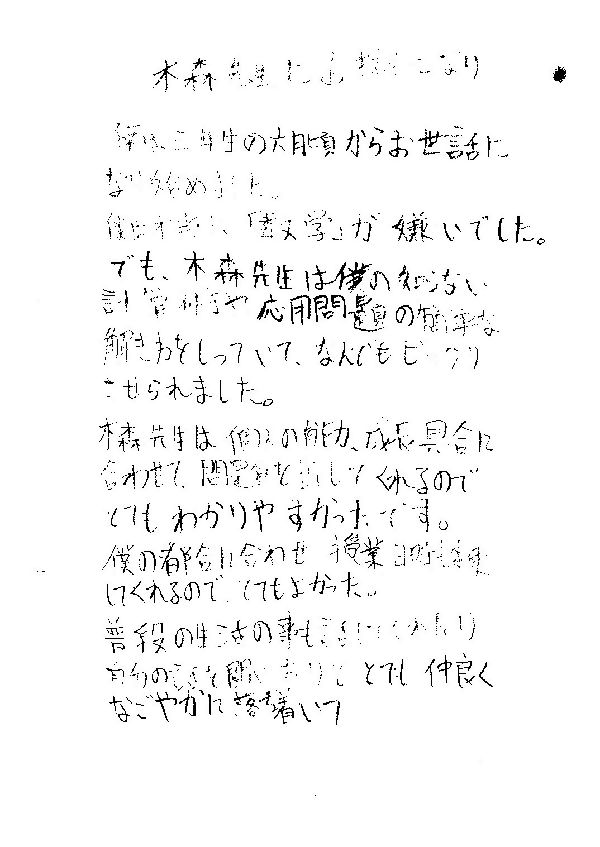 木森先生にお世話になり
僕は二年生の六月頃からお世話に
なり始めました。
僕は「数学」が嫌いでした。
でも、木森先生は僕の知らない
計算科学や応用問題の簡単な
解き方をしっていて、なんどもビックリ
させられました。
木森先生は個人の能力、成長具合に
合わせて問題を出してくれるので
とてもわかりやすかったです。
僕の都合に合わせ授業
してくれるので、とてもよかった。
普段の生活の事も話してくれたり
自分の話を聞いたりして とても仲良く
なごやかに落ち着いて